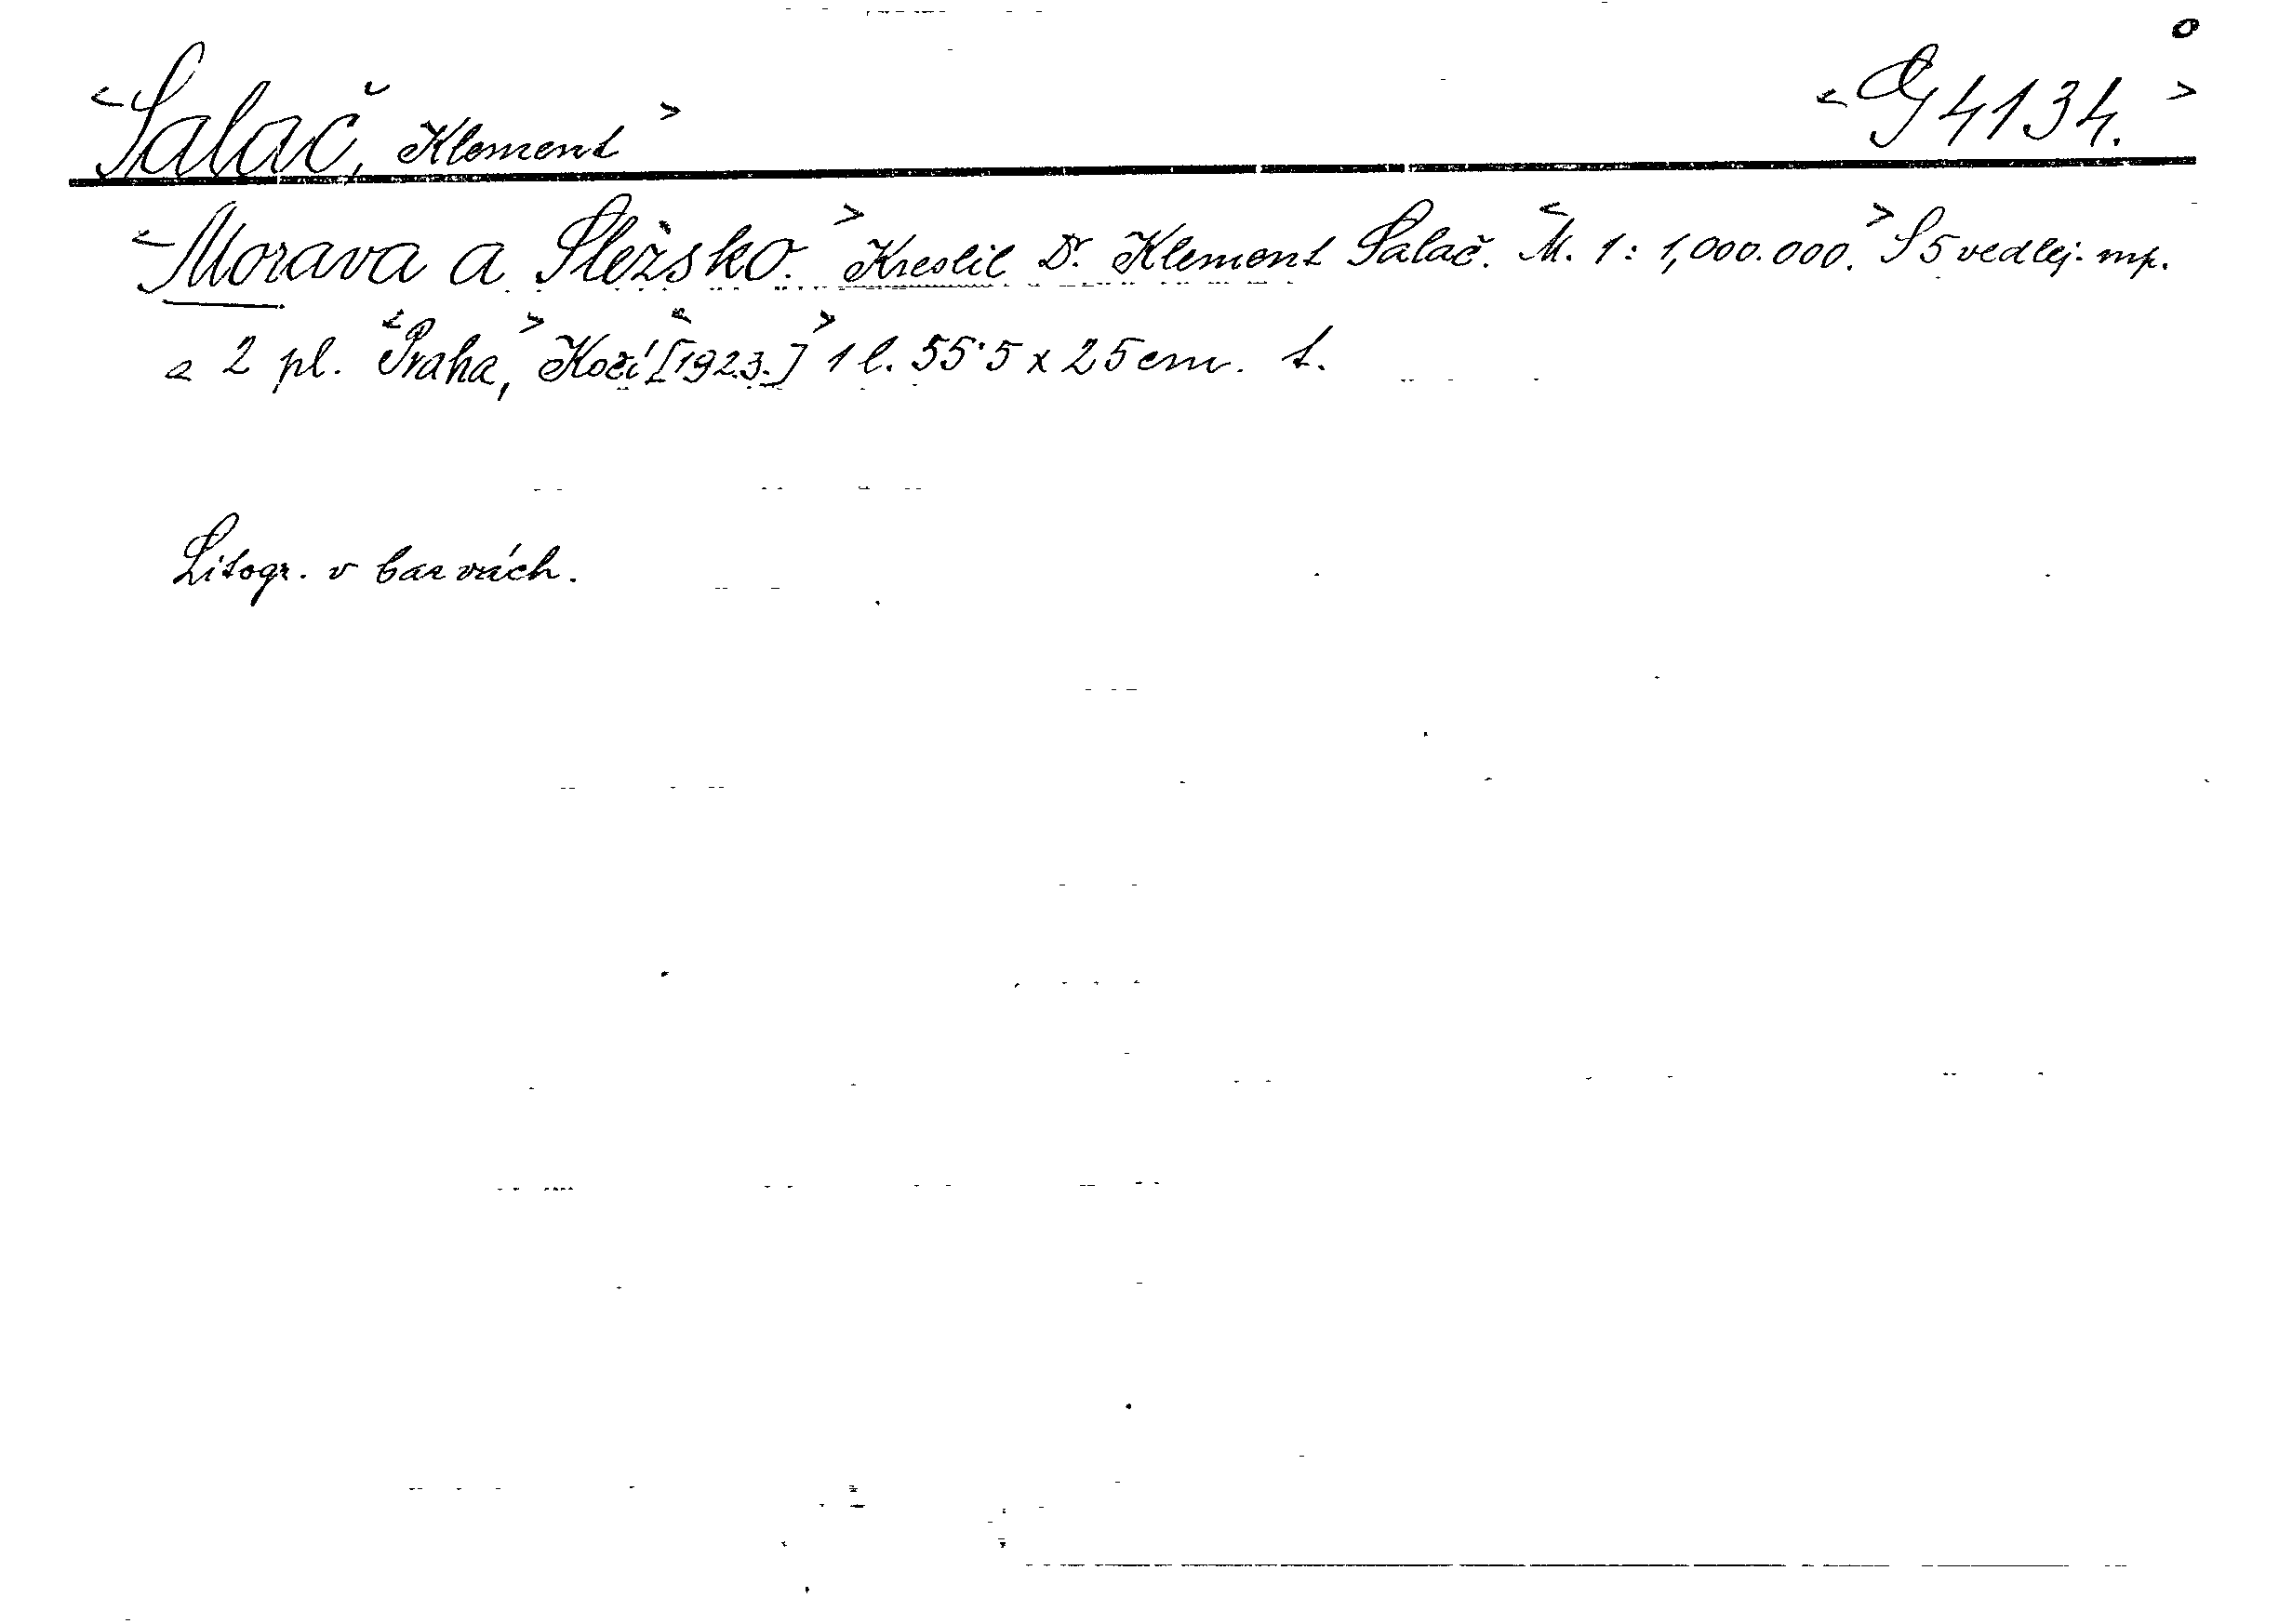 <Salač, Klement> <G 4134.>
<Morava a Slezsko.> Kreslil Dr. Klement Salač. <M. 1 : 1,000.000.> S 5 vedlej. mp.
a 2 pl. <Praha,> Kočí <[1923.]> 1 l. 55·5 x 25 cm. t.
Litogr. v barvách.